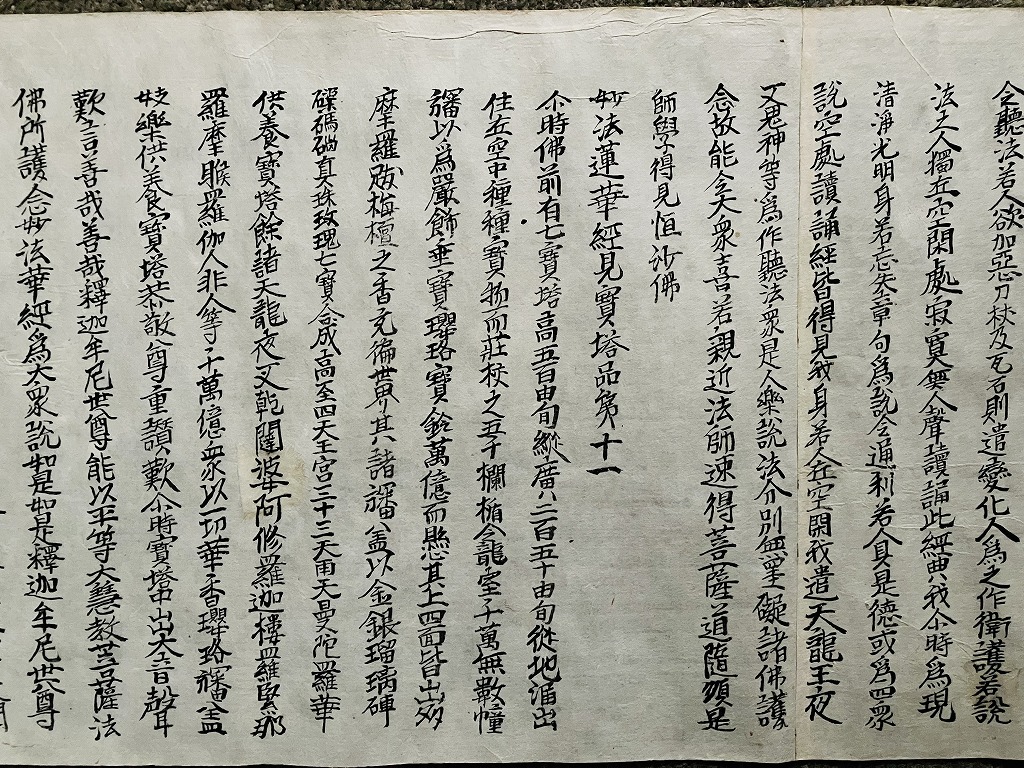 令聽法若人欲加惡刀杖及瓦石則遣變化人爲之作衛護若說
法之人獨在空閑處寂寞無人聲讀誦此經典我尒時爲現
清淨光明身若忘失章句爲說令通利若人具是德或爲四衆
說空處讀誦經皆得見我身若人在空閑我遣天龍王夜
叉鬼神等爲作聽法衆是人樂說法分別無罣礙諸佛護
念故能令大衆喜若親近法師速得菩薩道隨順是
師學得見恒沙佛
妙法蓮華經見寶塔品第十一
尒時佛前有七寶塔高五百由旬縱廣二百五十由旬從地涌出
住在空中種種寶物而莊校之五千欄楯令龕室千萬無數幢
旛以爲嚴飾垂寶瓔珞寶鈴萬億而懸其上四面皆出多
摩羅跋栴檀之香充徧世界其諸旛盖以金銀瑠璃硨
磲碼碯真珠玫瑰七寶合成高至四天王宮三十三天雨天曼陀羅華
供養寶塔餘諸天龍夜叉乾闥婆阿修羅迦樓羅緊那
羅摩睺羅伽人非人等千萬億衆以一切華香瓔珞旛盖
妓樂供養寶塔恭敬尊重讚歎尒時寶塔中出大音聲
歎言善哉善哉釋迦牟尼世尊能以平等大慧教菩薩法
佛所護念妙法華經爲大衆說如是如是釋迦牟尼世尊